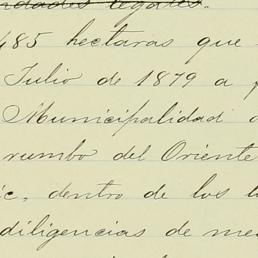 485 hectaras que
Julio de 1879 a
Municipalidad
rumbo del Oriente
dentro de los
diligencias de me